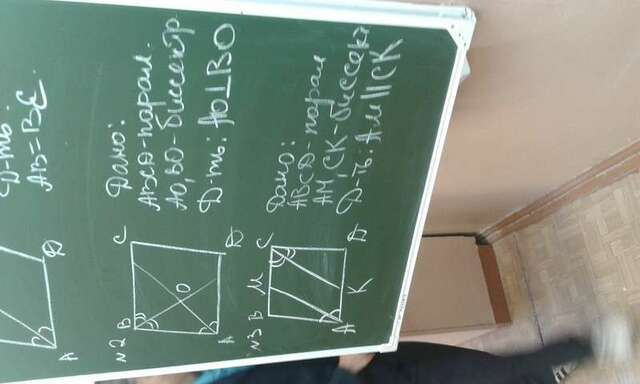 Д-ть:
AB=BE.
A
D
№2
B
C
O
A
D
Дано:
ABCD-парал.
AO,BO-биссектр.
Д-ть: AO⊥BO
№3
B
M
C
A
K
D
Дано:
ABCD-парал
AM,CK-биссект
Д-ть: AM||CK